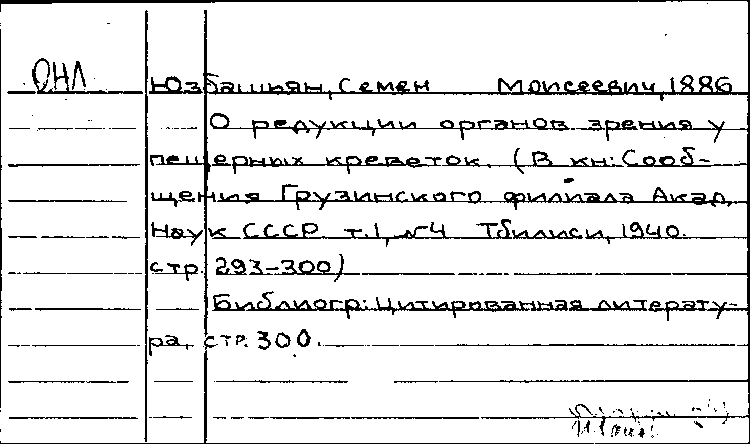 ОНЛ
Юзбашьян, Семен Моисеевич, 1886
О редукции органов зрения у
пещерных креветок. (В кн: Сооб-
щения Грузинского филиала Акад.
Наук СССР т. 1, №4 Тбилиси, 1940.
стр. 293-300)
Библиогр: Цитированная литерату-
ра, стр. 300.